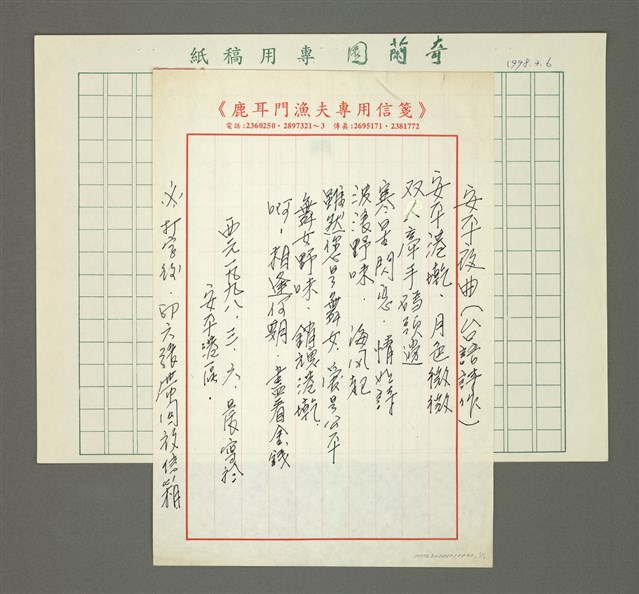 奇蘭園專用稿紙
1998.3.6
《鹿耳門漁夫專用信箋》
電話:2360250·2897321～3 傳真:2695171·2381772
安平夜曲(台語詩作)
安平港墘．月色微微
双人牽手碼頭邊
寒星閃忽．情如詩
波浪野味．海風起
雖然你是舞女 愛是公平
舞女野味．銷魂港墘．
啊，相逢何期．盡看金錢
西元一九九八．三．六 晨寫於
安平港區．
打字後．印六張帶回放信箱